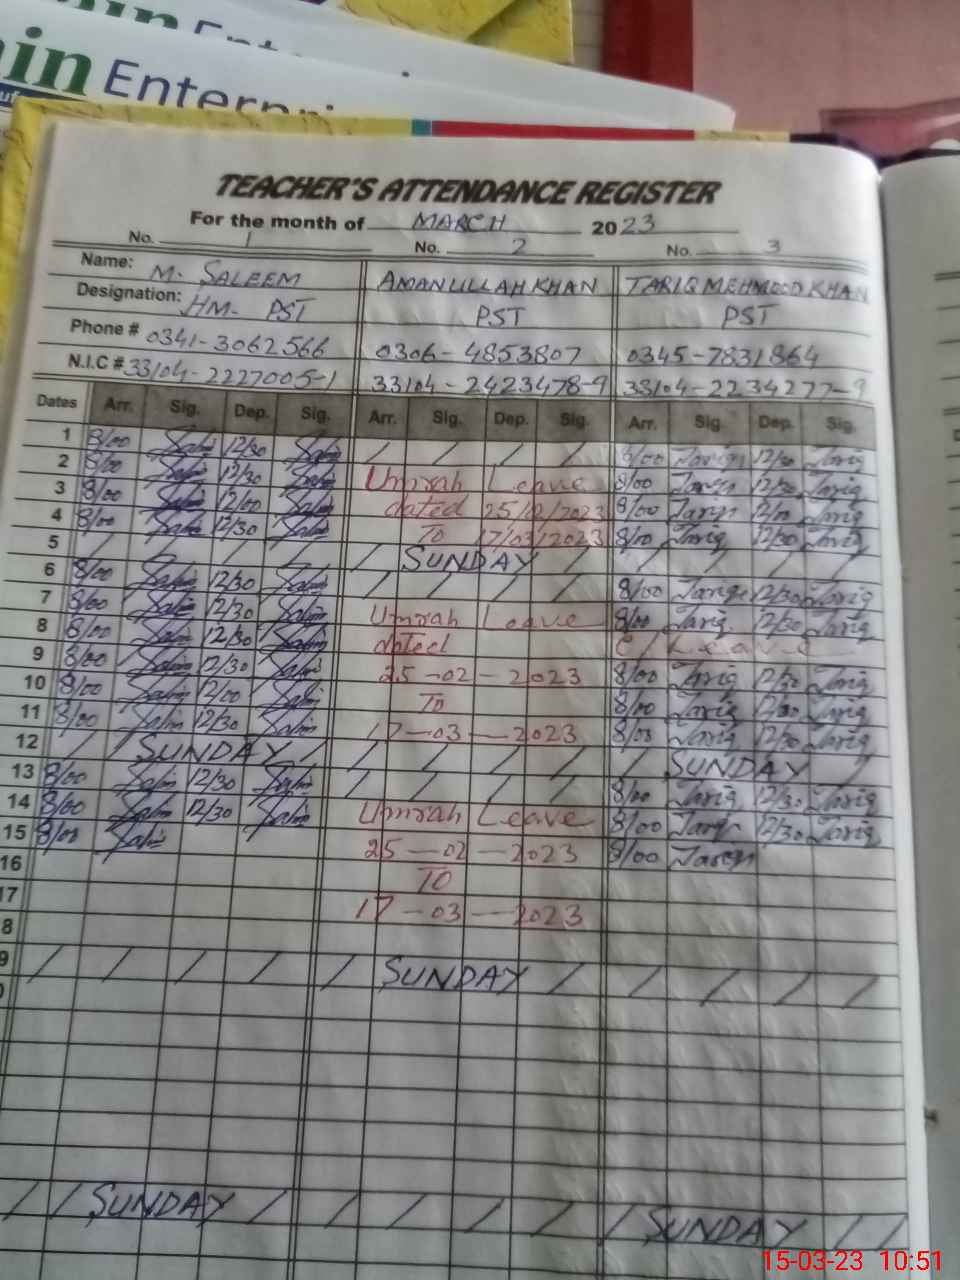 in Enterpri
TEACHER'S ATTENDANCE REGISTER
For the month of MARCH 2023
No. 1 No. 2 No. 3
Name: M. SALEEM AMANULLAH KHAN TARIQ MEHMOOD KHAN
Designation: HM- PST PST PST
Phone # 0341-3062566 0306-4853807 0345-7831864
N.I.C # 33104-2227005-1 33104-2423478-9 33104-2234277-9
Dates Arr. Sig. Dep. Sig. Arr. Sig. Dep. Sig. Arr. Sig. Dep. Sig.
1 8/00 Salim 12/30 Salim / / / / 8/00 Tariq 12/30 Tariq
2 8/00 Salim 12/30 Salim Umrah Leave 8/00 Tariq 12/30 Tariq
3 8/00 Salim 12/00 Salim dated 25/02/2023 8/00 Tariq 12/00 Tariq
4 8/00 Salim 12/30 Salim TO 17/03/2023 8/00 Tariq 12/30 Tariq
5 / / / / / SUNDAY / / / / /
6 8/00 Salim 12/30 Salim / / / / 8/00 Tariq 12/30 Tariq
7 8/00 Salim 12/30 Salim Umrah Leave 8/00 Tariq 12/30 Tariq
8 8/00 Salim 12/30 Salim dated C/Leave
9 8/00 Salim 12/30 Salim 25-02-2023 8/00 Tariq 12/30 Tariq
10 8/00 Salim 12/00 Salim TO 8/00 Tariq 12/00 Tariq
11 8/00 Salim 12/30 Salim 17-03-2023 8/00 Tariq 12/30 Tariq
12 / SUNDAY / / / / / / SUNDAY /
13 8/00 Salim 12/30 Salim / / / / 8/00 Tariq 12/30 Tariq
14 8/00 Salim 12/30 Salim Umrah Leave 8/00 Tariq 12/30 Tariq
15 8/00 Salim 25-02-2023 8/00 Tariq
16 TO
17 17-03-2023
8
9 / / / / / SUNDAY / / / / /
/ / SUNDAY / / / / / / SUNDAY / /
15-03-23 10:51